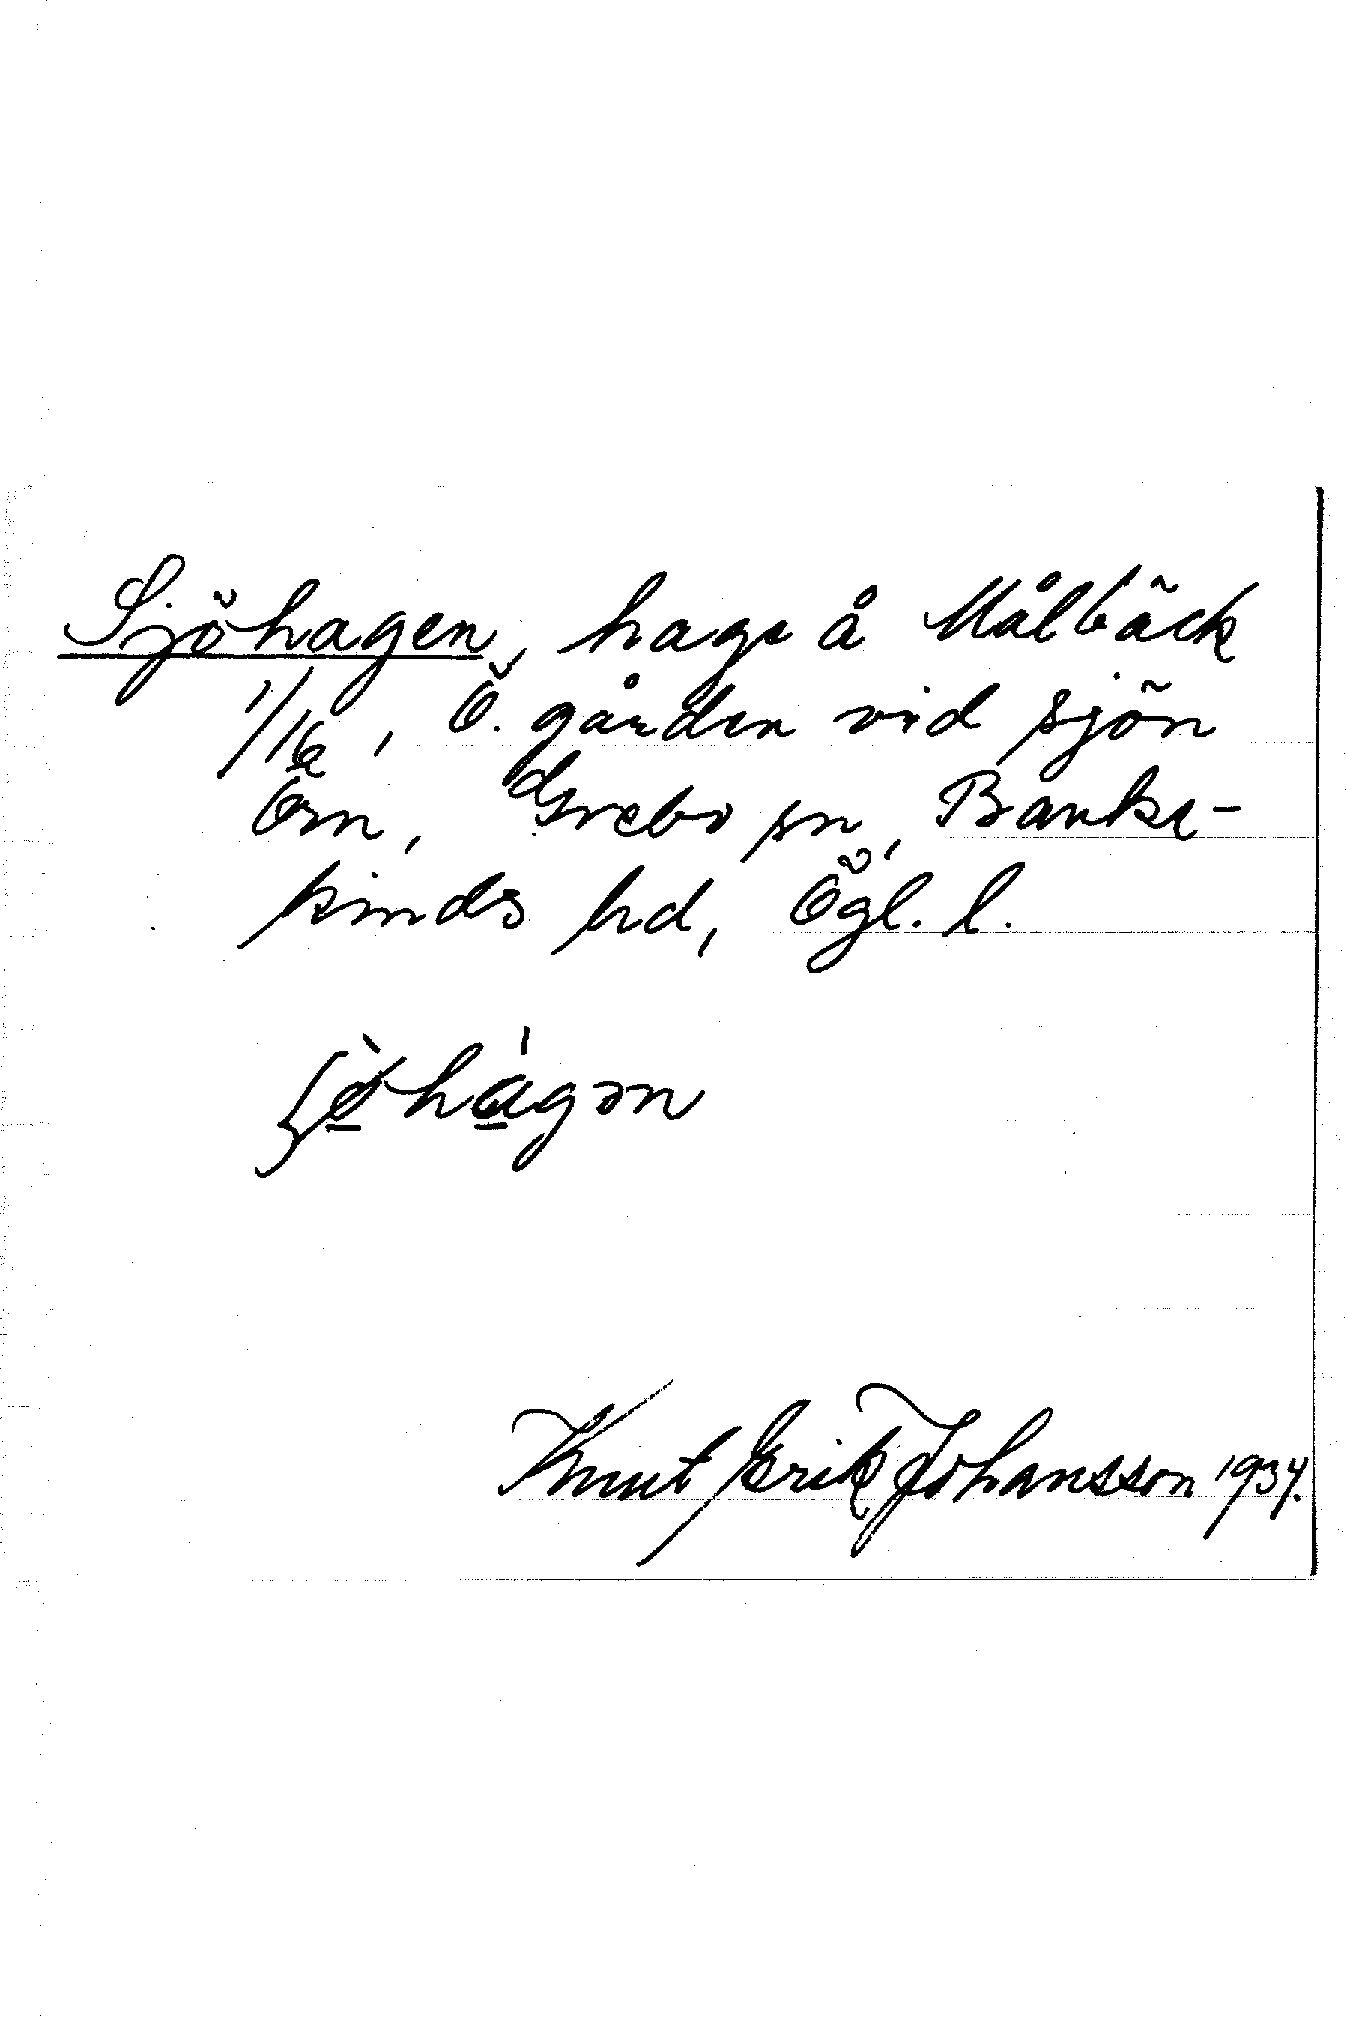 Sjöhagen, hage å Målbäck
1/16, Ö. gården vid sjön
Örn, Grebo sn, Banke-
kinds hd, Ögl. l.
ʃø̀hàgən
Knut Erik Johansson 1934.